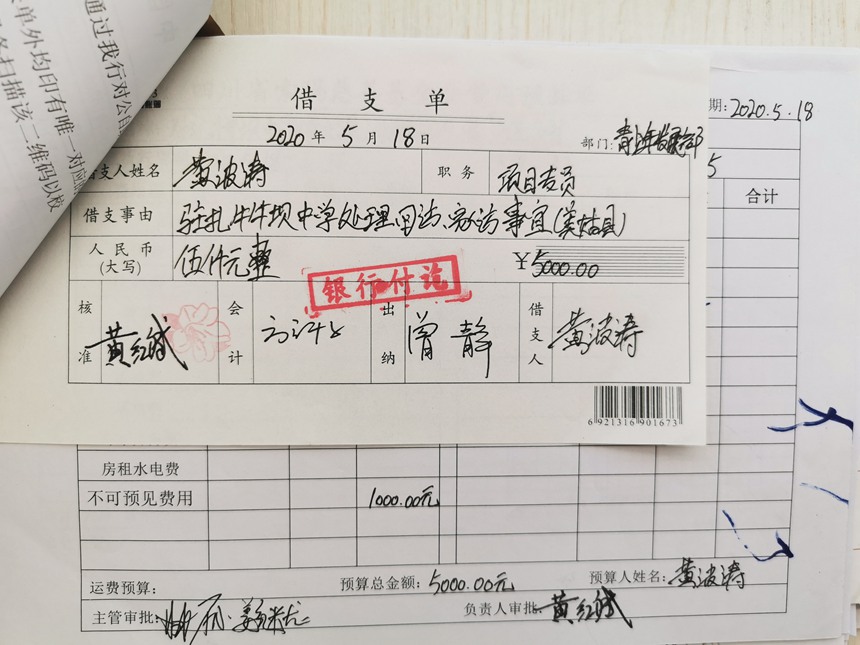 通过我行对公
单外均印有唯一对应
扫描该二维码以校
借支单
2020年5月18日
部门:
借支人姓名 黄波涛 职务 项目专员
借支事由 驻扎牛牛坝中学处理用法、家访事宜(美姑县)
人民币(大写) 伍仟元整 ¥5000.00
银行付讫
核准 黄红斌 会计 出纳 曾静 借支人 黄波涛
6 921316 901673
期:2020.5.18
5
合计
房租水电费
不可预见费用 1000.00元
运费预算: 预算总金额:5000.00元 预算人姓名:黄波涛
主管审批: 负责人审批:黄红斌